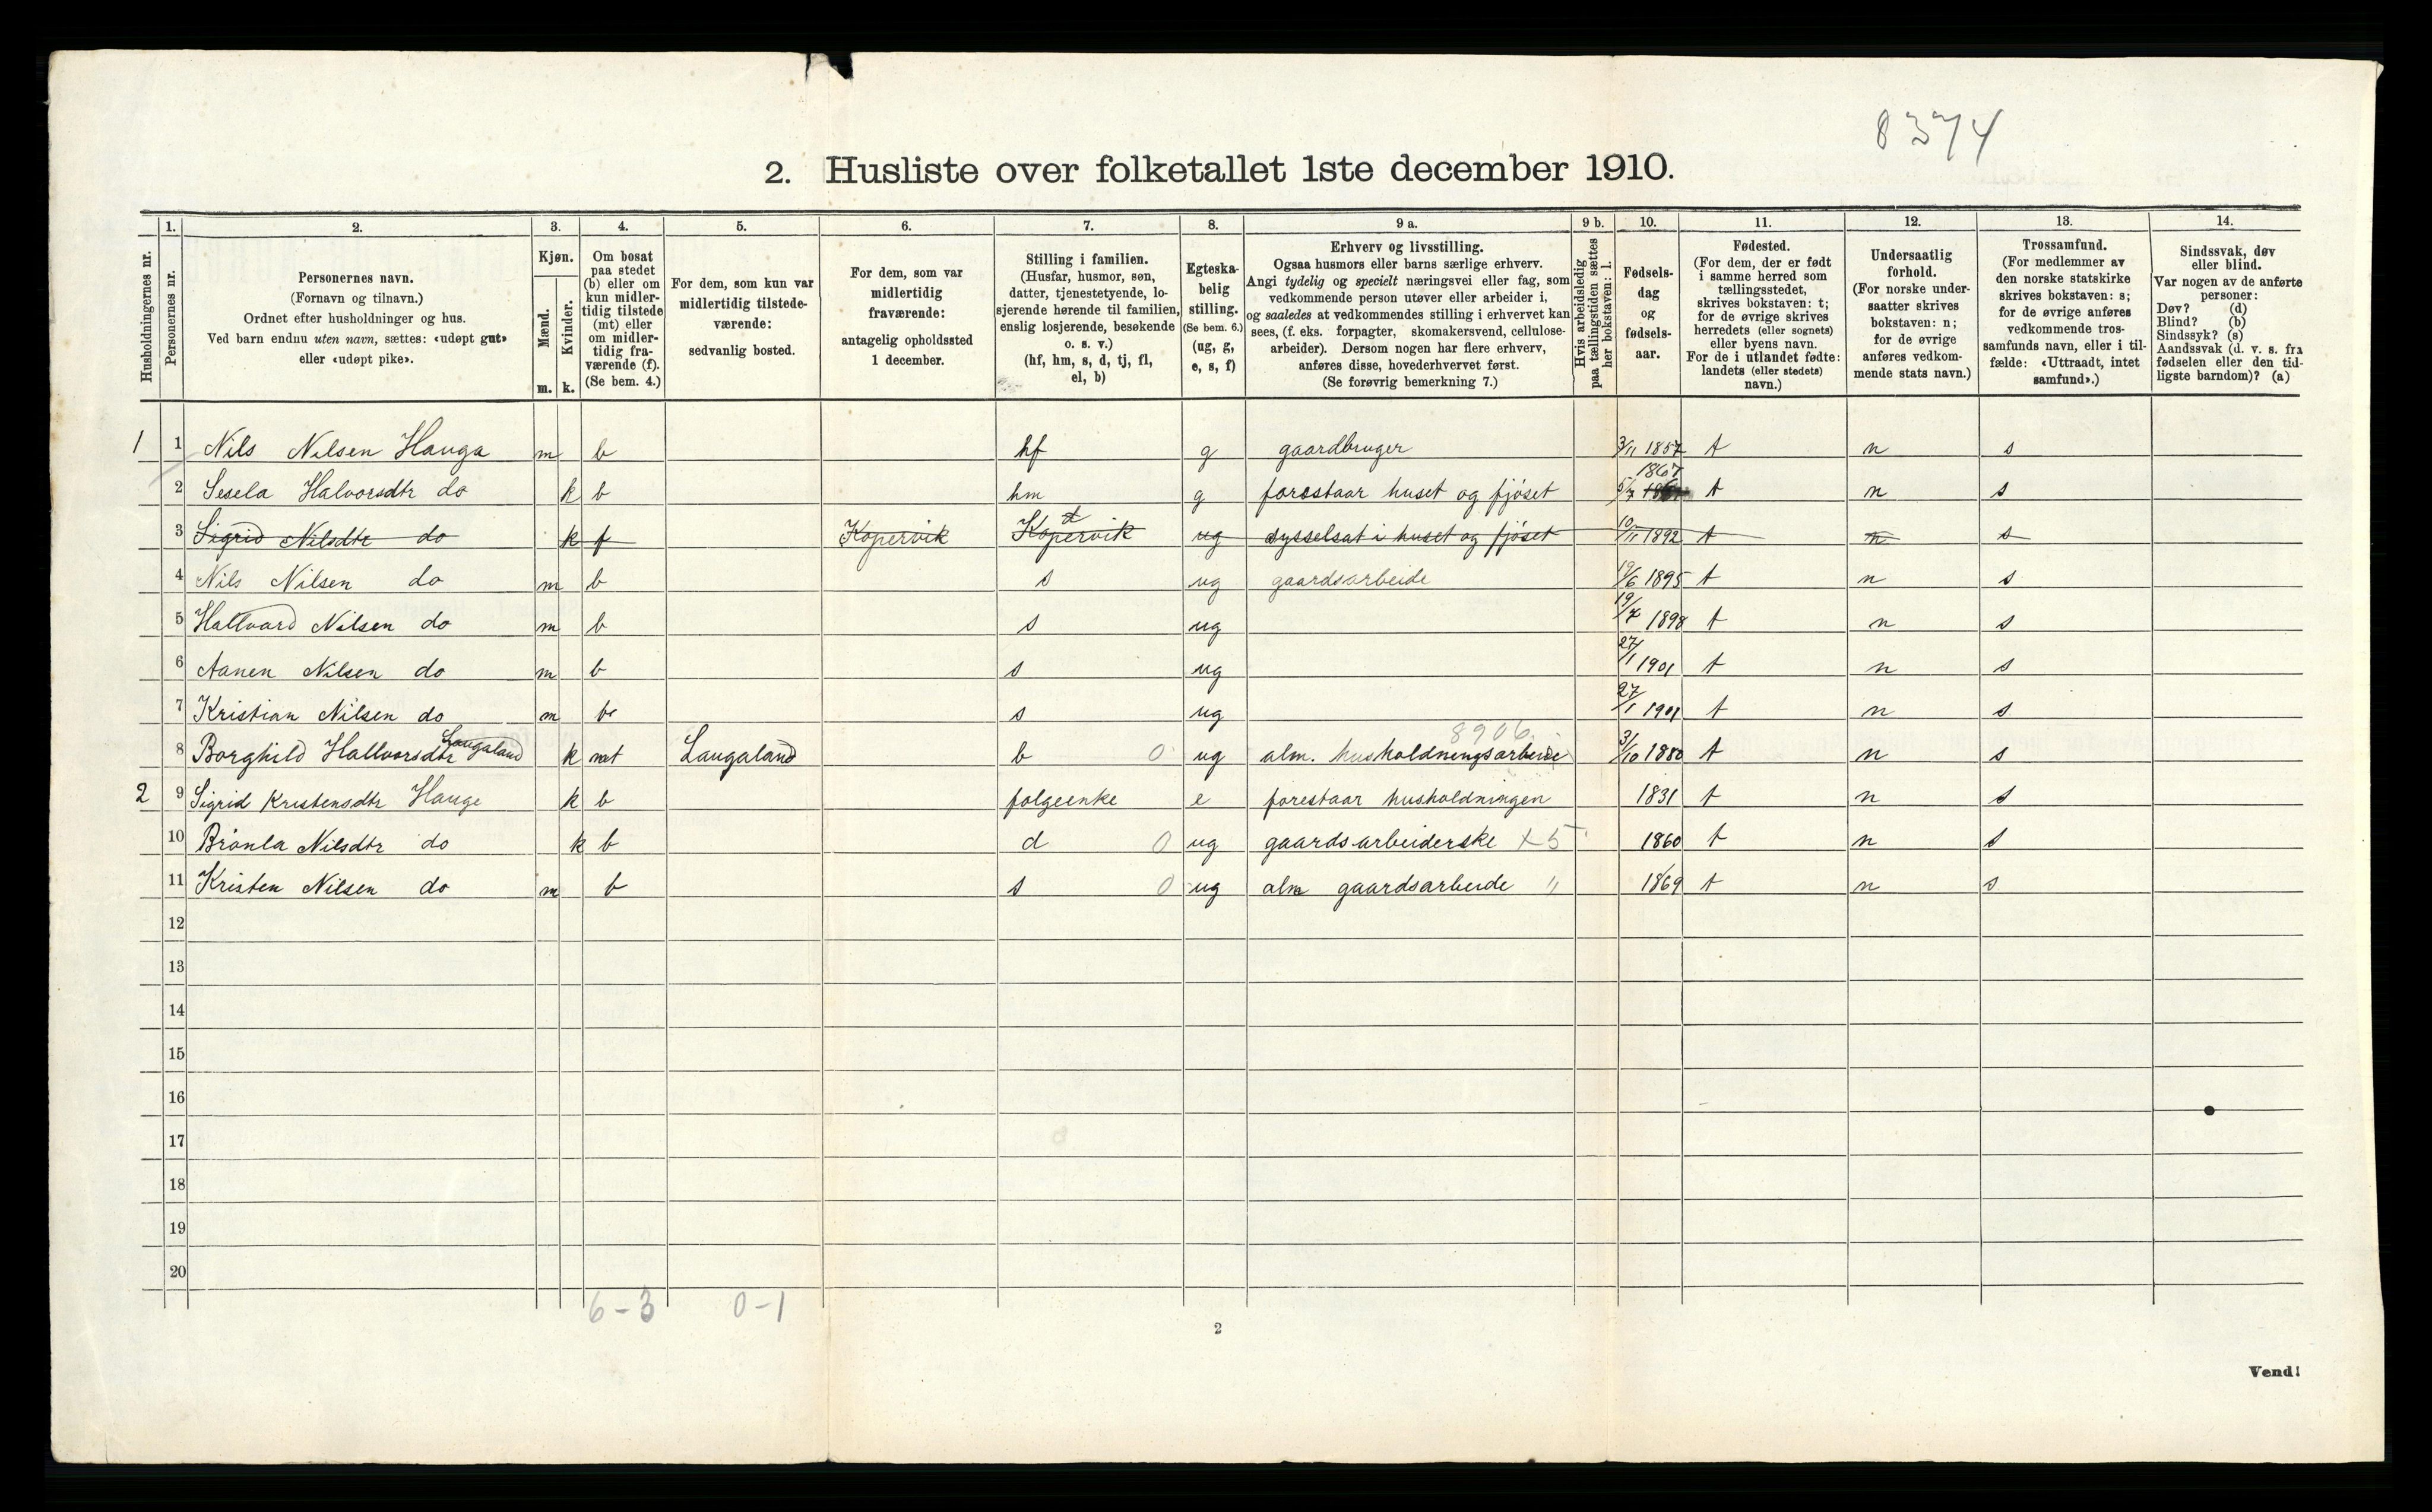 8374
2. Husliste over folketallet 1ste december 1910.
Husholdningernes nr.
1.
Personernes nr.
2.
Personernes navn.
(Fornavn og tilnavn.)
Ordnet efter husholdninger og hus.
Ved barn endnu uten navn, sættes: «udøpt gut»
eller «udøpt pike».
3.
Kjøn.
Mænd.
Kvinder.
m. k.
4.
Om bosat
paa stedet
(b) eller om
kun midler-
tidig tilstede
(mt) eller
om midler-
tidig fra-
værende (f).
(Se bem. 4.)
5.
For dem, som kun var
midlertidig tilstede-
værende:
sedvanlig bosted.
6.
For dem, som var
midlertidig
fraværende:
antagelig opholdssted
1 december.
7.
Stilling i familien.
(Husfar, husmor, søn,
datter, tjenestetyende, lo-
sjerende hørende til familien,
enslig losjerende, besøkende
o. s. v.)
(hf, hm, s, d, tj, fl,
el, b)
8.
Egteska-
belig
stilling.
(Se bem. 6.)
(ug, g,
e, s, f)
9 a.
Erhverv og livsstilling.
Ogsaa husmors eller barns særlige erhverv.
Angi tydelig og specielt næringsvei eller fag, som
vedkommende person utøver eller arbeider i,
og saaledes at vedkommendes stilling i erhvervet kan
sees, (f. eks. forpagter, skomakersvend, cellulose-
arbeider). Dersom nogen har flere erhverv,
anføres disse, hovederhvervet først.
(Se forøvrig bemerkning 7.)
9 b.
Hvis arbeidsledig
paa tællingstiden sættes
her bokstaven: l.
10.
Fødsels-
dag
og
fødsels-
aar.
11.
Fødested.
(For dem, der er født
i samme herred som
tællingsstedet,
skrives bokstaven: t;
for de øvrige skrives
herredets (eller sognets)
eller byens navn.
For de i utlandet fødte:
landets (eller stedets)
navn.)
12.
Undersaatlig
forhold.
(For norske under-
saatter skrives
bokstaven: n;
for de øvrige
anføres vedkom-
mende stats navn.)
13.
Trossamfund.
(For medlemmer av
den norske statskirke
skrives bokstaven: s;
for de øvrige anføres
vedkommende tros-
samfunds navn, eller i til-
fælde: «Uttraadt, intet
samfund».)
14.
Sindssvak, døv
eller blind.
Var nogen av de anførte
personer:
Døv? (d)
Blind? (b)
Sindssyk? (s)
Aandssvak (d. v. s. fra
fødselen eller den tid-
ligste barndom)? (a)
1 1 Nils Nilsen Hauga m b hf g gaardbruger 3/11 1857 t n s
2 Sesela Halvorsdtr do k b hm g forestaar huset og fjøset 5/7 1867 t n s
3 Sigrid Nilsdtr do k f Kopervik Kopervik d ug sysselsat i huset og fjøset 10/11 1892 t n s
4 Nils Nilsen do m b s ug gaardsarbeide 19/6 1895 t n s
5 Hallvard Nilsen do m b s ug 19/7 1898 t n s
6 Aanen Nilsen do m b s ug 27/1 1901 t n s
7 Kristian Nilsen do m b s ug 27/1 1901 t n s
8906
8 Borghild Hallvorsdtr Laugaland k mt Laugaland b 0 ug alm. husholdningsarbeide 3/10 1880 t n s
2 9 Sigrid Kristensdtr Hauge k b folgeenke e forestaar husholdningen 1831 t n s
10 Brønla Nilsdtr do k b d 0 ug gaardsarbeiderske x5 1860 t n s
11 Kristen Nilsen do m b s 0 ug alm gaardsarbeide " 1869 t n s
12
13
14
15
16
17
18
19
20
6-3 0-1
2
Vend!